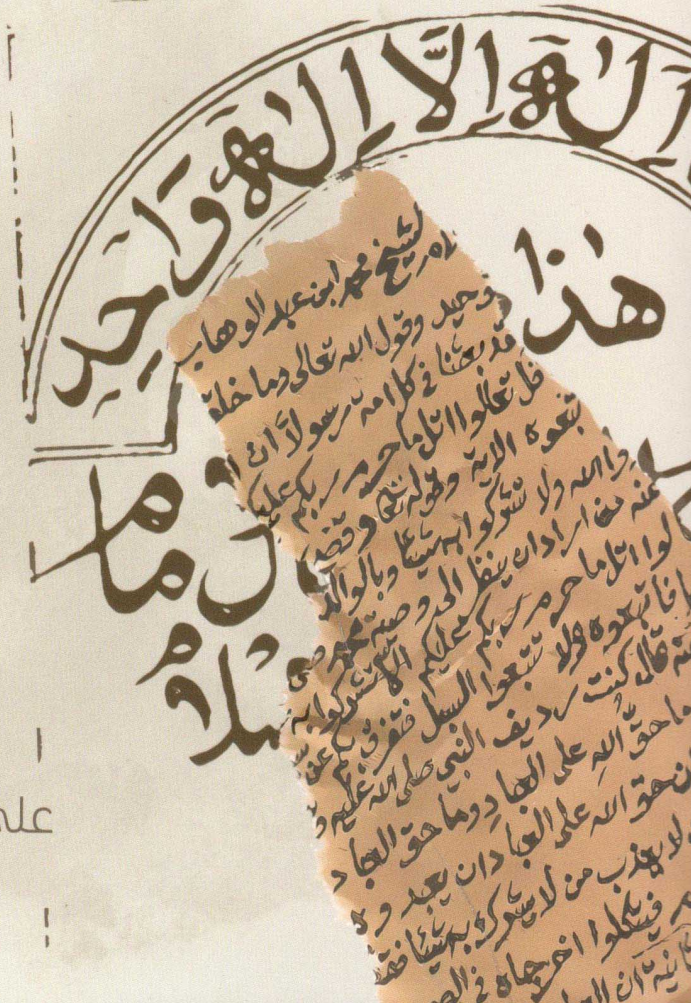 إله إلا إله واحد
هذا
مام
سلام
على
لشيخ محمد ابن عبد الوهاب
وحيد وقول الله تعالى وما خلق
قد بعثنا في كل امة رسولا ان
قل تعالوا اتل ما حرم ربكم عليكم
الاية وقوله وقضى
وا الله ولا تشركوا به شيئا وبالوالد
من اراد ان ينظر الى وصية محمد
لوا اتل ما حرم ربكم عليكم الا تشركوا به
فاتبعوه ولا تتبعوا السبل فتفرق بكم عن
قال كنت رديف النبي صلى الله عليه و
ما حق الله على العباد وما حق العباد
ن حق الله على العباد ان يعبدوه
لا يعذب من لا يشرك به شيئا فق
فيتكلوا اخرجاه في الص
ان